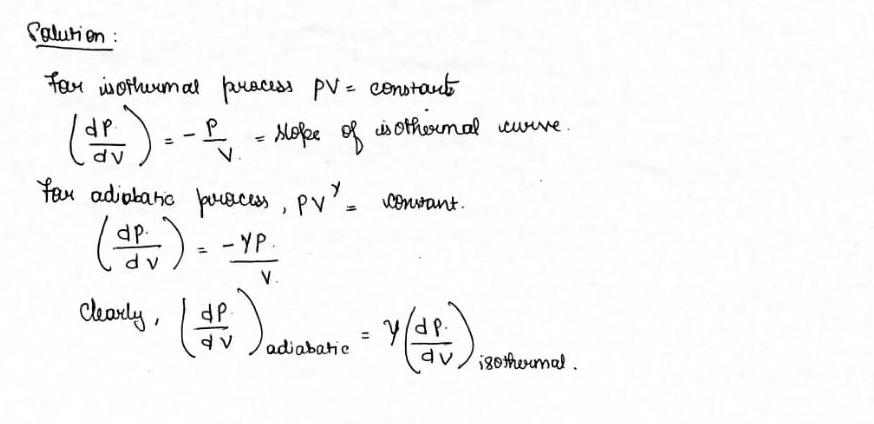 Solution :
For isothermal process PV = constant
(dP/dV) = - P/V = slope of isothermal curve.
For adiabatic process, PV^γ = constant.
(dP/dV) = -γP/V
Clearly, (dP/dV)adiabatic = γ(dP/dV)isothermal.